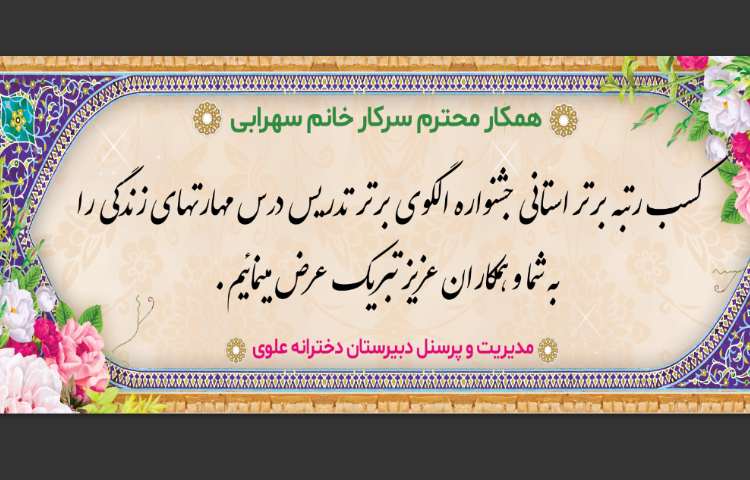 همکار محترم سرکار خانم سهرابی
کسب رتبه برتر استانی جشنواره الگوی برتر تدریس درس مهارتهای زندگی را
به شما و همکاران عزیز تبریک عرض مینمائیم .
مدیریت و پرسنل دبیرستان دخترانه علوی